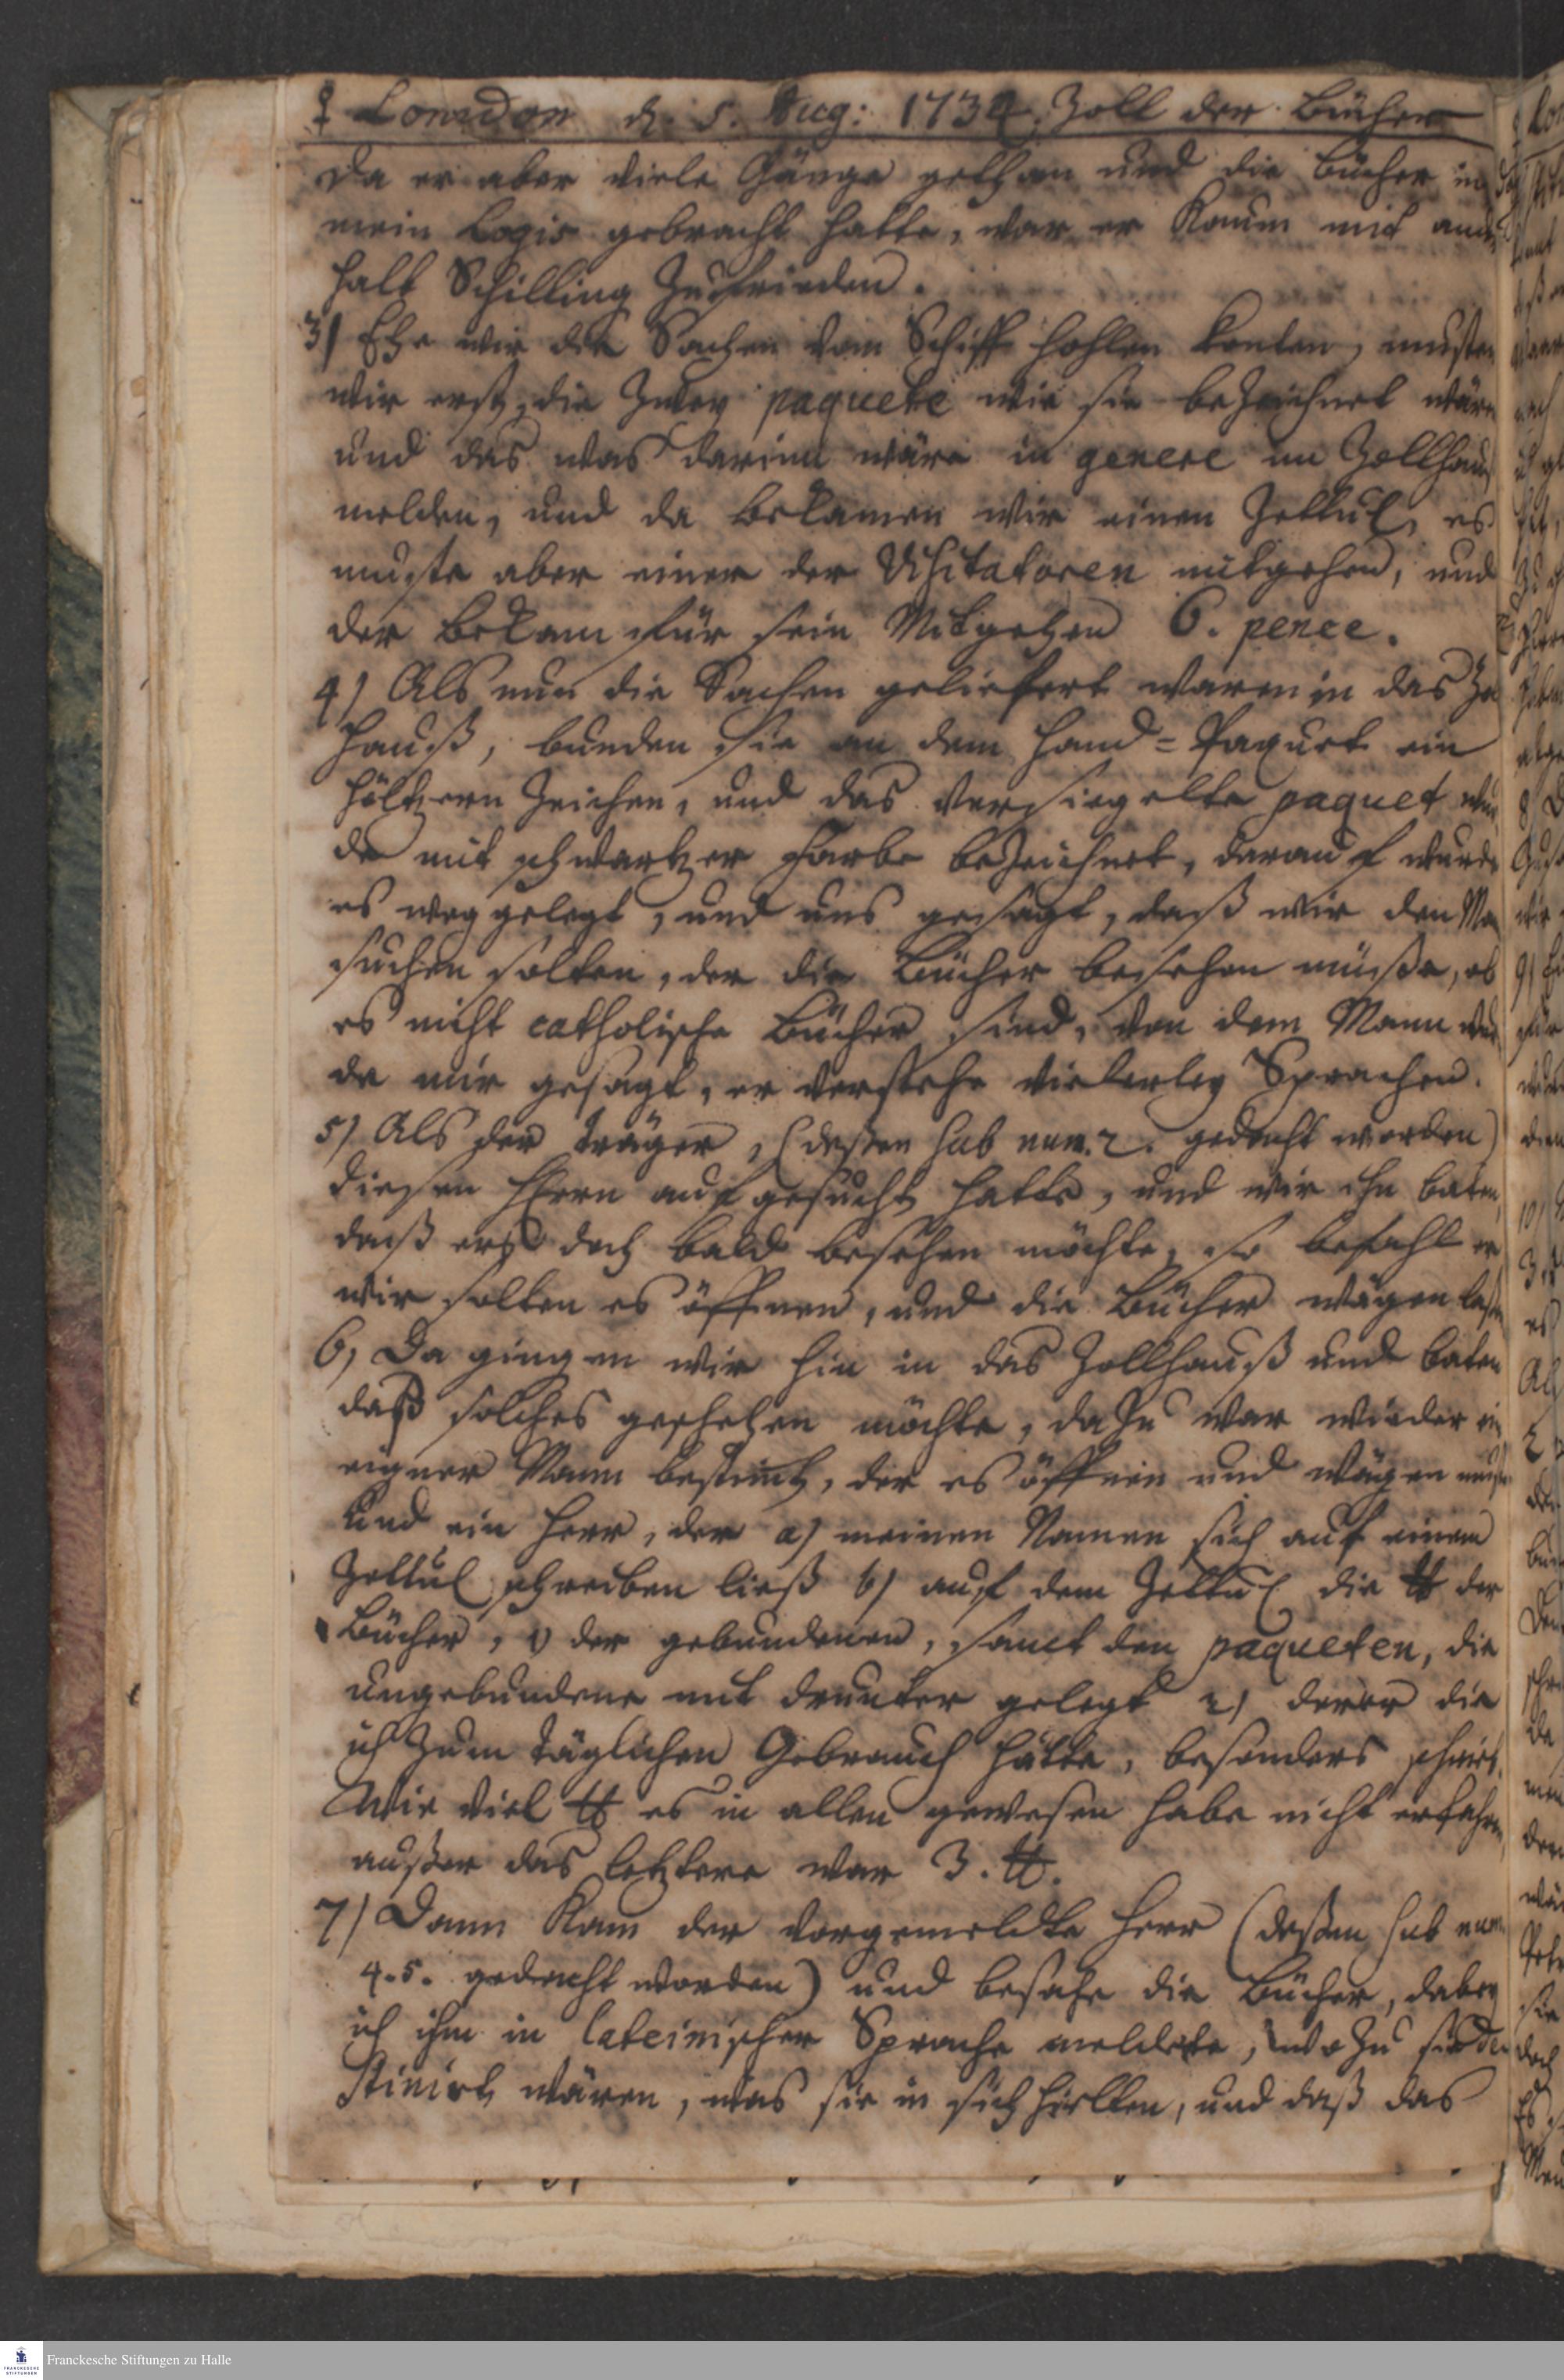 ♀ Londom d. 5. Aug: 1732. Zoll der Bücher
Da er aber viele Gänge gethan und die Bücher in
mein Logis gebracht hatte, war er kaum mit andert
halb Schilling zufrieden.
3) Ehe wir die Sachen vom Schiff hohlen konten, musten
wir erst die zwey paquete wie sie bezeichnet wären
und das was darinn wäre in genere im Zollhauß
melden, und da bekamen wir einen Zettul, es
muste aber einer der Visitatoren mitgehen, und
der bekam für sein Mitgehen 6. pence.
4) Als nun die Sachen geliefert waren in das Zo
hauß, bunden sie an dem Hand-Paquet ein
höltzern Zeichen, und das versiegelte paquet wur
de mit schwartzer Farbe bezeichnet, darauf wurde
es weg gelegt, und uns gesagt, daß wir den Ma
suchen solten, der die Bücher besehen müße, ob
es nicht catholische Bücher sind, von dem Mann wur
de mir gesagt, er verstehe vielerley Sprachen.
5) Als der Träger, (deßen sub num. 2. gedacht worden)
diesen Herrn aufgesucht hatte, und wir ihn baten,
daß ers doch bald besehen möchte, so befahl er
wir solten es öffnen, und die Bücher wägen laßen
6) Da gingen wir hin in das Zollhauß und baten
daß solches geschehen möchte, dazu war wieder ein
eigner Mann bestimt, der es öffnen und wägen muste
und ein Herr, der a) meinen Namen sich auf einem
Zettul schreiben ließ b) auf dem Zettul die ℔ der
Bücher, 1) der gebundenen, samt den paqueten, die
ungebundene mit drunter gelegt 2) derer die
ich zum täglichen Gebrauch hätte, besonders schrieb.
Wie viel ℔ es in allen gewesen habe nicht erfahren,
außer das letztere war 3. ℔.
7) Dann kam der vorgemeldte Herr (deßen sub num.
4. 5. gedacht worden) und besahe die Bücher, dabey
ich ihm in lateinischer Sprache meldete, wozu sie de
stinirt wären, was sie in sich hielten, und daß das
Franckesche Stiftungen zu Halle